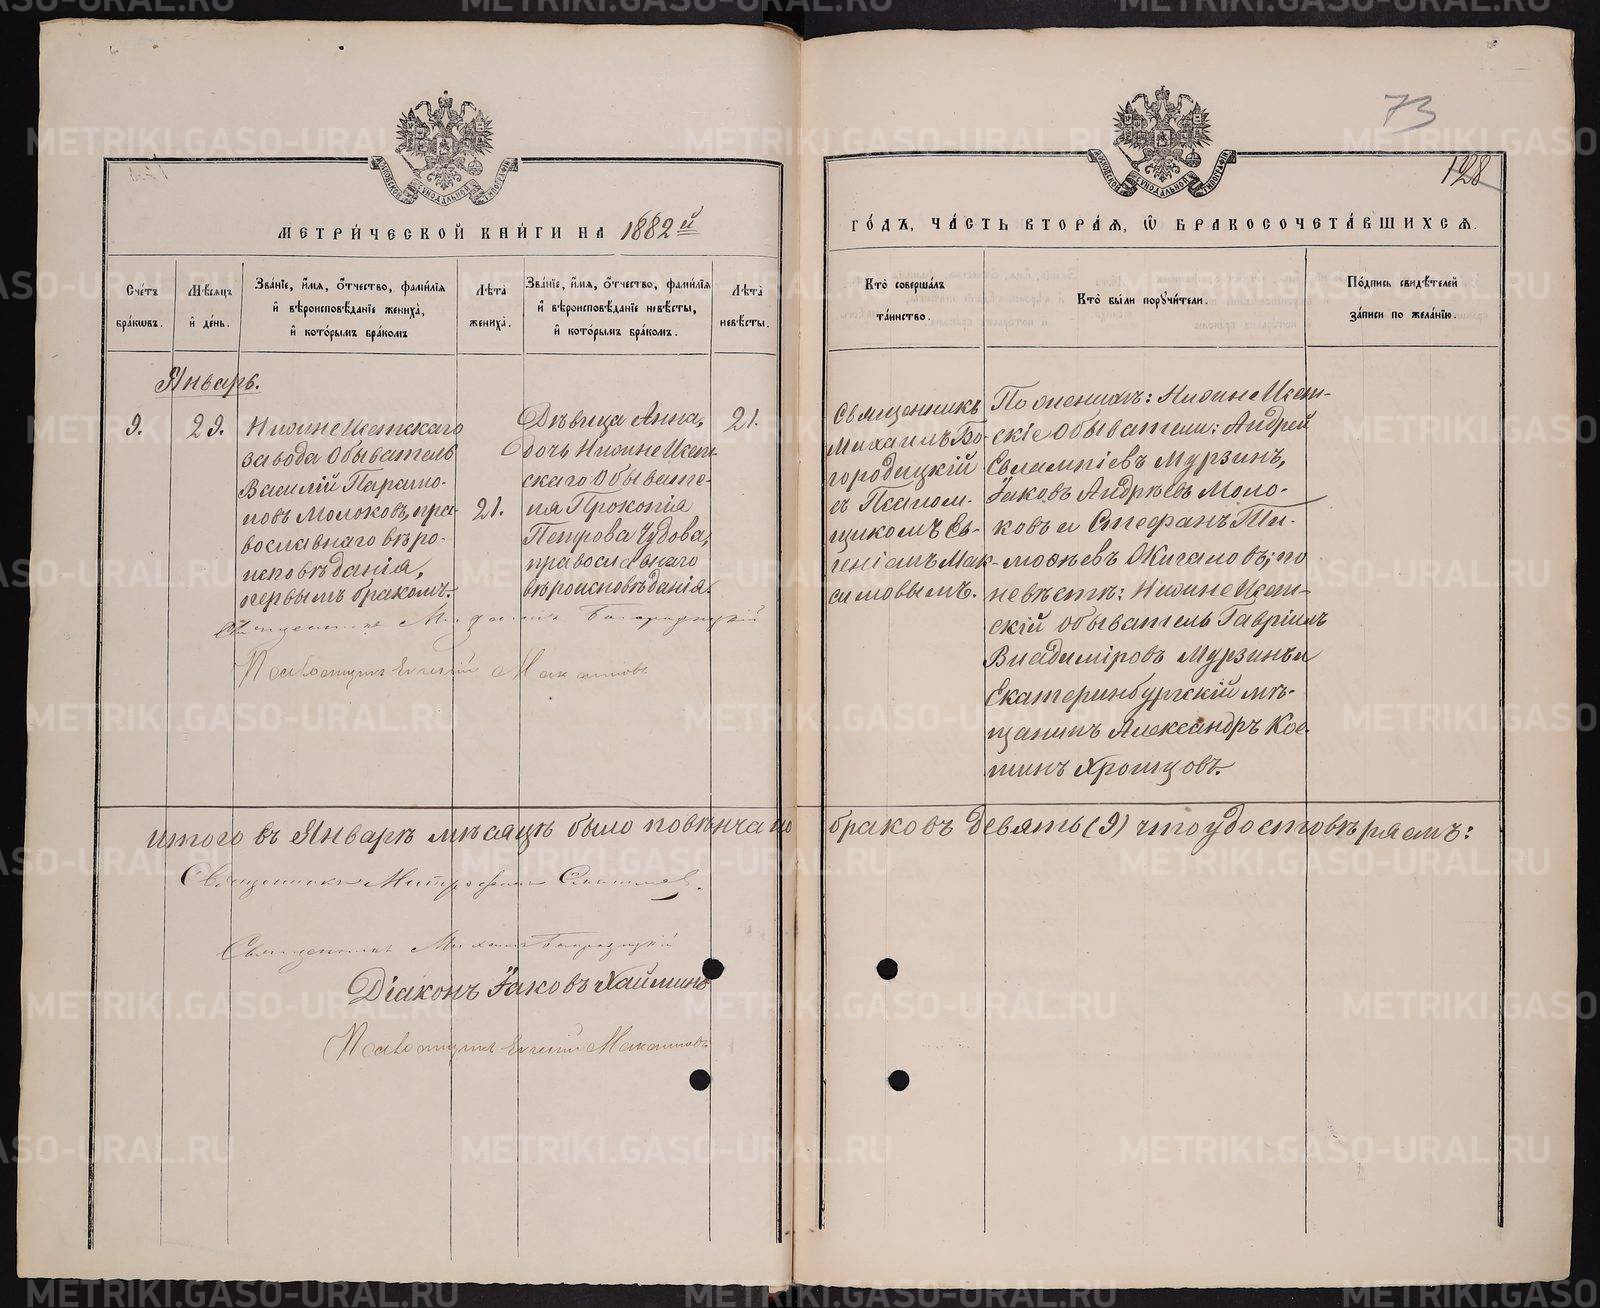 73
128
МЕТРИ́ЧЕСКОЙ КНИ́ГИ НА 1882й
ГО́ДЪ, ЧА́СТЬ ВТОРА́Я, Ѡ҆ БРАКОСОЧЕТА́ВШИХСѦ.
Сче́тъ бра́кѡвъ.
Мѣ́сяцъ й де́нь.
Зва́нїе, и҆́мя, ѻ҆́тчество, фамі́лїя
и҆ вѣроисповѣ́данїе жениха̀,
и҆ кото́рымъ бра́комъ
Лѣ́та жениха̀.
Зва́нїе, и҆́мя, ѻ҆́тчество, фамі́лїя
и҆ вѣроисповѣ́данїе невѣ́сты,
и҆ кото́рымъ бра́комъ.
Лѣ́та невѣ́сты.
Кто̀ соверша́лъ
та́инство.
Кто̀ бы́ли порꙋчи́тели.
По́дпись свидѣ́телей
за́писи по жела́нїю.
Январь.
9.
29.
Нижне Исетскаго
завода Обыватель
Василій Парамо-
новъ Молоковъ, пра-
вославнаго вѣро-
исповѣданія,
первымъ бракомъ.
21.
Дѣвица Анна,
дочь Нижне Исет-
скаго Обывате-
ля Прокопія
Петрова Чудова,
православнаго
вѣроисповѣданія.
21.
Священникъ
Михаилъ Бо-
городицкій
съ Псалом-
щикомъ Ев-
геніемъ Мак-
симовымъ.
По женихѣ: Нижне Исет-
скіе Обыватели: Андрей
Евлампіевъ Мурзинъ,
Іаковъ Андрѣевъ Моло-
ковъ и Стефанъ Ти-
моѳѣевъ Ожигановъ; по
невѣстѣ: Нижне Исет-
скій обыватель Гавріилъ
Владиміровъ Мурзинъ и
Екатеринбургскій мѣ-
щанинъ Александръ Кос-
тинъ Хромцовъ.
Священникъ Михаилъ Богородицкій
Псаломщикъ Евгеній Максимовъ
итого въ Январѣ мѣсяцѣ было повѣнчано браковъ девять (9) что удостовѣряемъ:
Священникъ Митрофанъ
Священникъ Михаилъ Богородицкій
Діаконъ Іаковъ Хайминъ
Псаломщикъ Евгеній Максимовъ